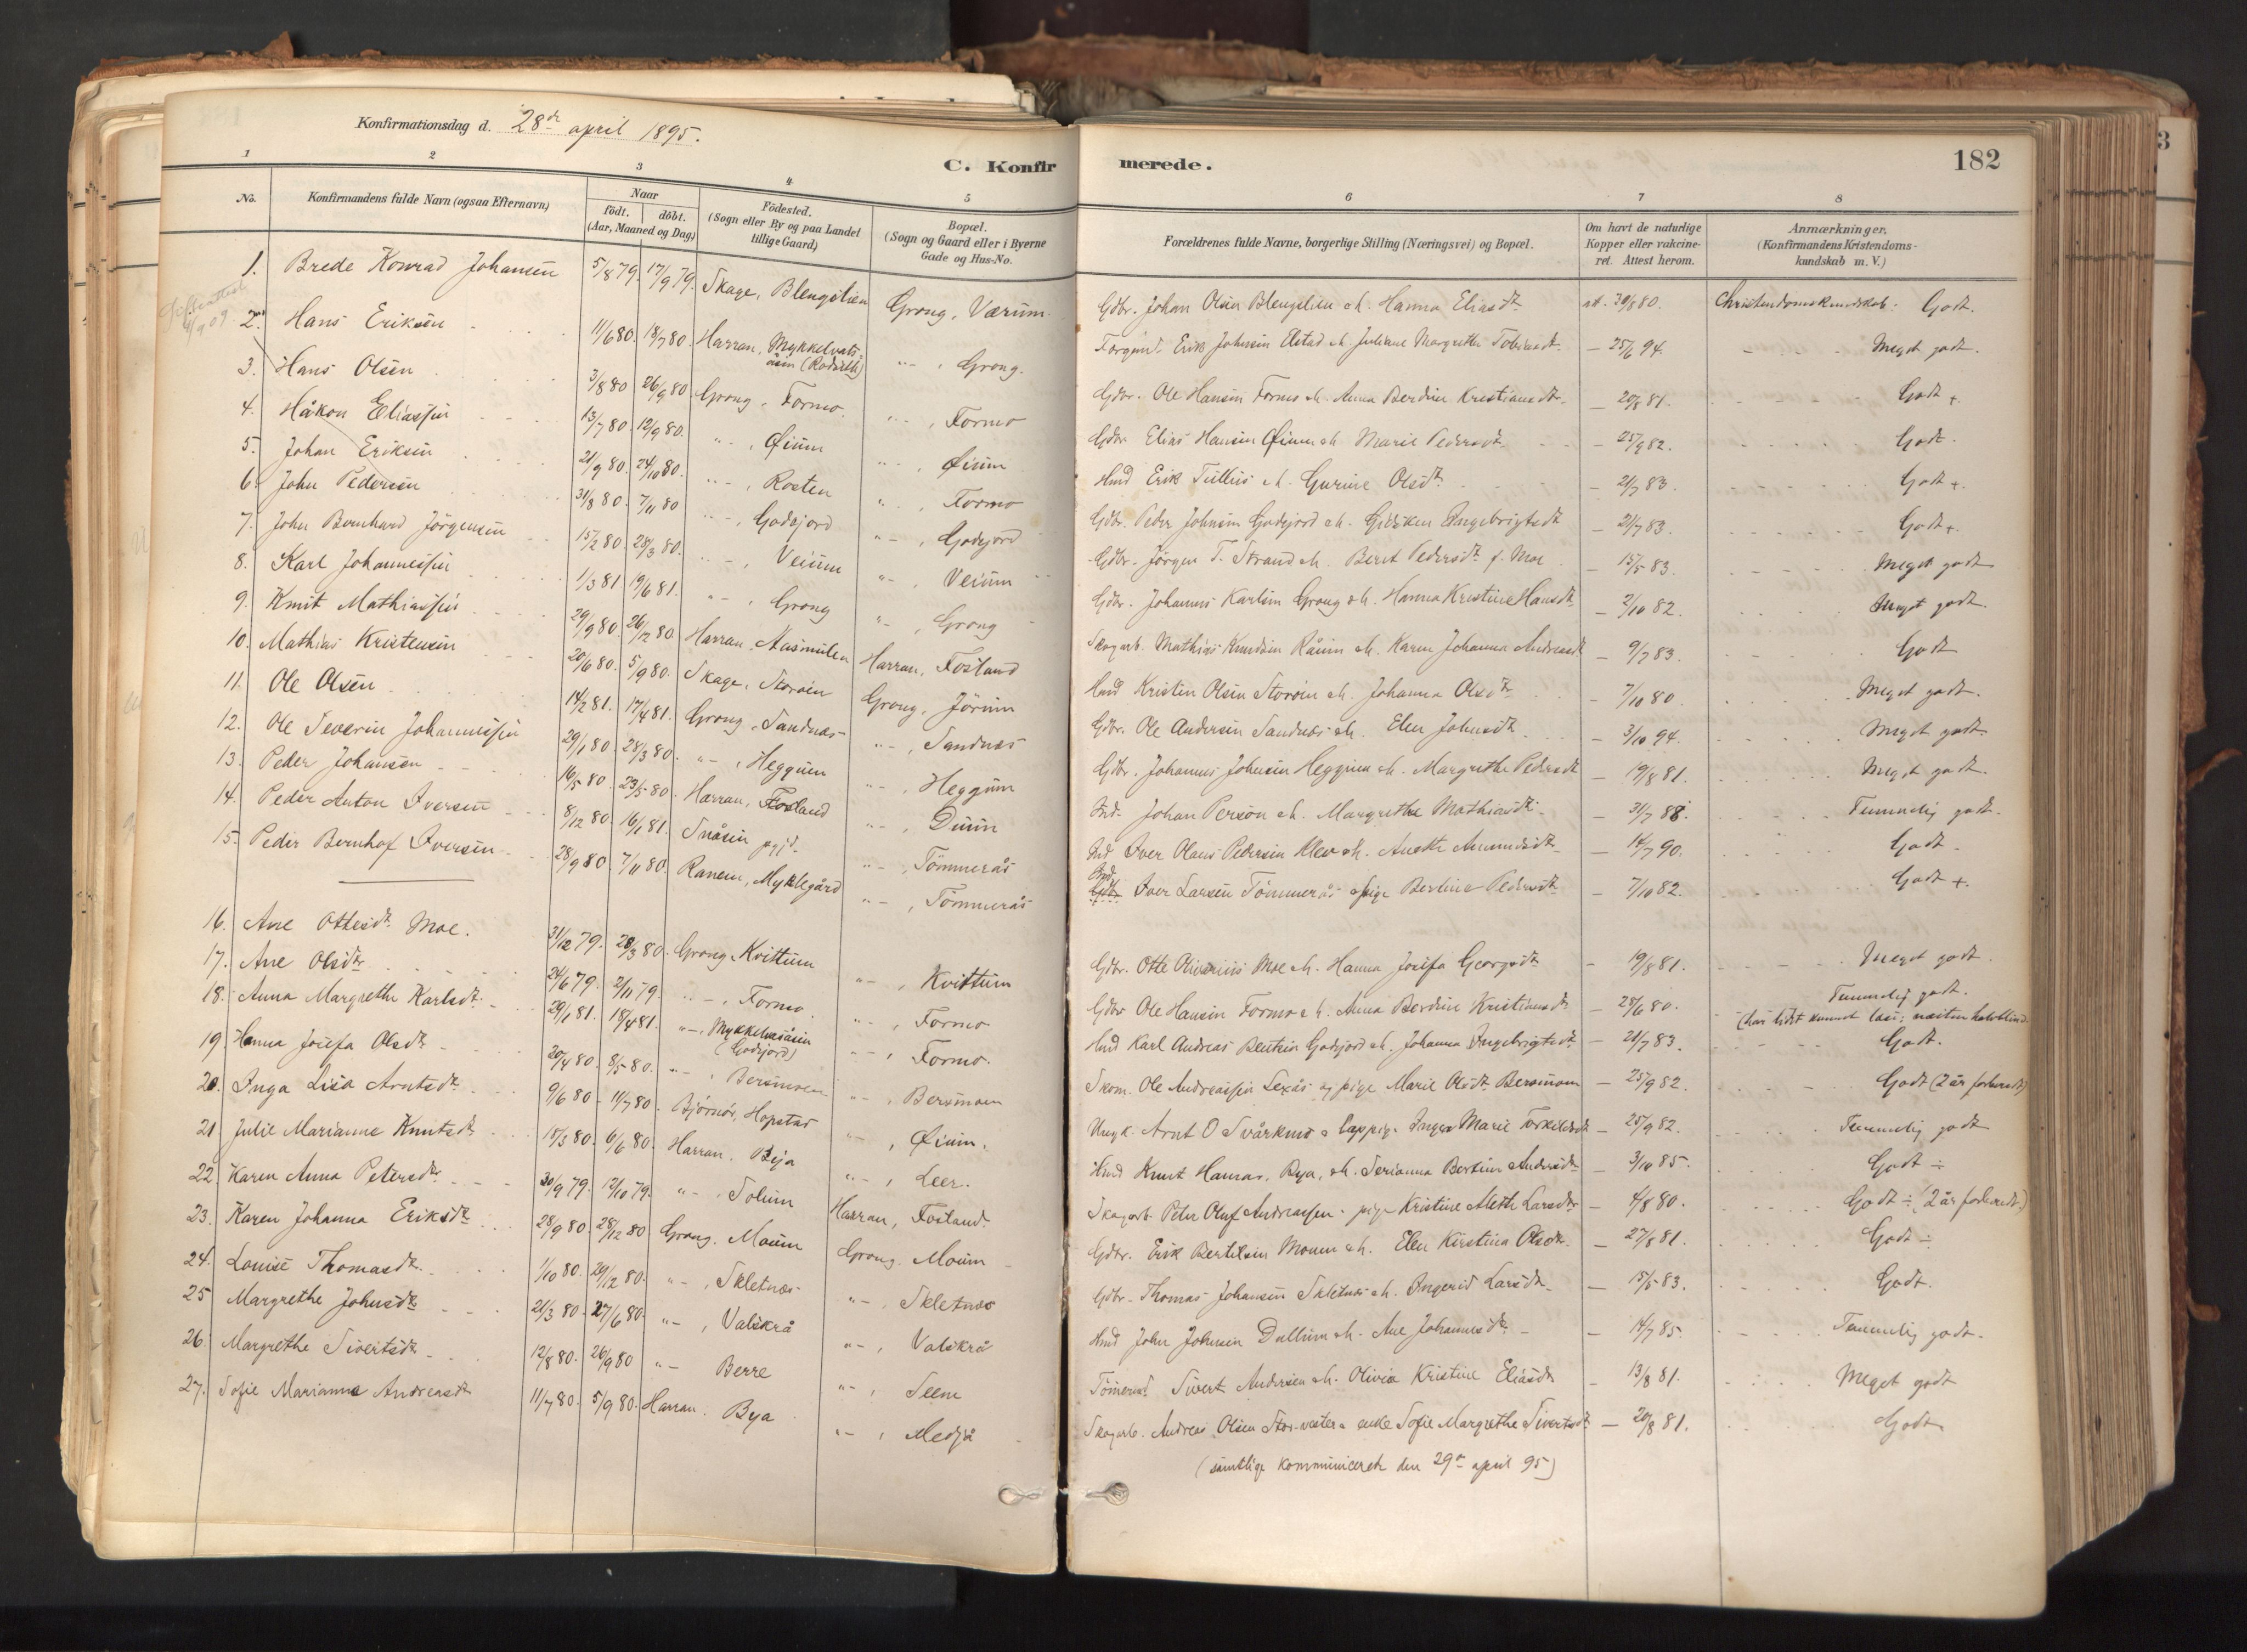 Konfirmationsdag d. 28de april 1895.
C. Konfirmerede.
182
1 2 3 4 5 6 7 8
No.
Konfirmandens fulde Navn (ogsaa Efternavn)
Naar
födt. döbt.
(Aar, Maaned og Dag)
Födested.
(Sogn eller By og paa Landet
tillige Gaard)
Bopæl.
(Sogn og Gaard eller i Byerne
Gade og Hus-No.
Forældrenes fulde Navne, borgerlige Stilling (Næringsvei) og Bopæl.
Om havt de naturlige
Kopper eller vakcine-
ret. Attest herom.
Anmærkninger.
(Konfirmandens Kristendoms-
kundskab m. V.)
1. Brede Konrad Johansen 5/8 79. 17/9 79. Skage, Blengslien Grong, Værum. Gdbr. Johan Olsen Blengslien & h. Hanna Eliasdt. att. 30/8 80. Christendomskundskab: Godt.
2. Hans Eriksen 11/6 80. 18/7 80. Harran, Mykkelvatsåsen "-, Grong. Erik Johnsen & h. Juliane Margrethe - 25/6 94. Meget godt.
3. Hans Olsen 3/8 80 26/9 80. Grong, Formo. "-, Formo Gdbr. Ole Hansen Formo & h. Anna Berdine Kristiansdt. - 20/8 81. Godt +.
4. Håkon Eliassen 13/7 80. 12/9 80. "-, Øium "-, Øium Gdbr. Elias Hansen Øium & h. Marie Pedersdt. - 25/9 82. Godt.
5. Johan Eriksen 21/9 80. 24/10 80. "-, Rosten "-, Formo Hmd Erik Tullius & h. Gurine Olsdt. - 21/7 83. Godt +.
6. John Pedersen 31/8 80. 7/11 80 "-, Godejord "-, Godejord Gdbr. Peder Johnsen Godejord & h. Gidsken Ingebrigtsdt. - 21/7 83. Godt +.
7. John Bernhard Jörgensen 15/2 80. 28/3 80. "-, Veium "-, Veium Gdbr. Jörgen T. Strand & h. Berit Pedersdt. f. Moe - 15/5 83. Meget godt
8. Karl Johannessen 1/3 81 19/6 81. "-, Grong "-, Grong Gdbr. Johannes Karlsen Grong & h. Hanna Kristine Hansdt. - 2/10 82. Meget godt.
9. Knut Mathiassen 29/9 80. 26/12 80. Harran, Aasmulen Harran, Fosland Skogarb. Mathias Knudsen Råum & h. Karen Johanna Andreasdt - 9/7 83. Godt
10. Mathias Kristensen 20/6 80. 5/9 80. Skage, Storøin Grong, Jörum Hmd Kristen Olsen Storøin & h. Johanna Olsdt. - 7/10 80. Meget godt.
11. Ole Olsen 14/2 81. 17/4 81. Grong, Sandnæs "-, Sandnæs Gdbr. Ole Andersen Sandnæs & h. Elen Johnsdt. - 3/10 94. Meget godt.
12. Ole Severin Johannessen 29/1 80. 28/3 80. "-, Heggum "-, Heggum Gdbr. Johannes Johnsen Heggum & h. Margrethe Pedersdt - 19/8 81. Meget godt.
13. Peder Johansen 16/5 80. 23/5 80. Harran, Fosland "-, Duun Ind. Johan Person & h. Margrethe Mathiasdt. - 31/7 88. Temmelig godt.
14. Peder Anton Iversen 8/12 80. 16/1 81. Snåsen pgjd. "-, Tömmerås Ind Iver Olaus Pedersen Klev & h. Anette Amundsdt. - 14/7 90. Godt.
15. Peder Bernhof Iversen 28/9 80. 7/11 80. Ranem, Myklegård "-, Tömmerås Ind. Iver Larsen Tömmerås & pige Berline Pedersdt. - 7/10 82. Godt +.
16. Ane Ottesdt. Moe. 31/12 79. 28/3 80. Grong, Kvittum "-, Kvittum Gdbr. Otte Moe & h. Hanna Josefa Georgsdt. - 19/8 81. Meget godt.
17. Ane Olsdtr 24/6 79. 2/11 79. "-, Formo "-, Formo Gdbr Ole Hansen Formo & h. Anna Berdine Kristiansdt. - 28/6 80. Temmelig godt.
(har lidet kunnet læse; næsten halvblind.
18. Anna Margrethe Karlsdt. 29/1 81. 18/4 81. "-, Mykkelvasåsen (Godejord) "-, Formo. Hmd Karl Andreas Bentsen Godejord & h. Johanna Ingebrigtsdt - 21/7 83. Godt.
19. Hanna Josefa Olsdt. 20/4 80. 9/5 80. "-, Bersmoen "-, Bersmoen Skom. Ole Andreassen Lexås og pige Marie Olsdt. Bersmoen - 25/9 82. Godt (2 år forberedt)
20. Inga Lisa Arntsdt. 9/6 80. 11/7 80. Björnör, Hopstad "-, Øium. Ungk. Arnt O. & lappige Inger Marie Torkildsdt - 25/9 82. Temmelig godt
21. Julie Marianne Knutsdt. 15/3 80. 6/6 80. Harran. Bya "-, Leer. Hmd Knut Hansen, Bya, & h. Serianna Bertine Andersdt. - 3/10 85. Godt ÷
22. Karen Anna Petersdt. 30/9 79. 12/10 79. "-, Solum Harran, Fosland. Skogarb. Peter Oluf Andreassen & pige Kristine Mette Larsdt. - 4/8 80. Godt ÷ (2 år forberedt.)
23. Karen Johanna Eriksdt. 28/9 80. 28/12 80. Grong. Moum Grong. Moum Gdbr. Erik Bertelsen Moum & h. Elen Kirstina Olsdt. - 27/8 81. Godt ÷
24. Louise Thomasdt. 1/10 80. 29/12 80. "-, Skletnæs "-, Skletnæs Gdbr. Thomas Johansen Skletnæs & h. Ingerid Larsdt. - 15/5 83. Godt.
25 Margrethe Johnsdt. 21/3 80. 27/6 80. "-, Valskrå "-, Valskrå Hmd John Johnsen Dullum & h. Ane Johannesdt. - 14/7 85. Temmelig godt.
26. Margrethe Sivertsdt. 12/8 80. 26/9 80 "- Berre "-, Seem Sivert Andersen & h. Olivia Kristine Eliasdt - 13/8 81. Meget godt
27. Sofie Marianna Andreasdt 11/7 80. 5/9 80. Harran. Bya "-, Medjå Skogarb. Andreas Olsen & enke Sofie Margrethe Sivertsdt. - 20/8 81. Godt
(samtlige kommuniceret den 29de april 95)